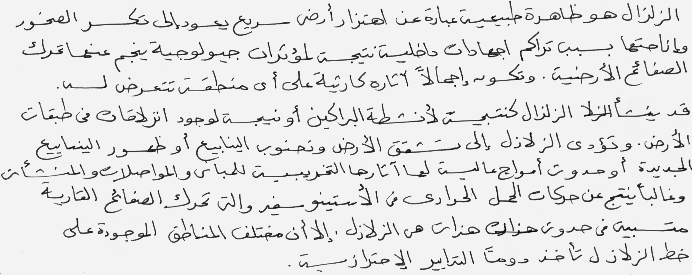 الزلزال هو ظاهرة طبيعية عبارة عن اهتزاز أرضي سريع يعود إلى تكسر الصخور
وإزاحتها بسبب تراكم اجهادات داخلية نتيجة لمؤثرات جيولوجية ينجم عنها تحرك
الصفائح الأرضية. وتكون إجمالاً آثاره كارثية على أي منطقة تتعرض له.
قد ينشأ الزلزال كنتيجة لأنشطة البراكين أو نتيجة لوجود انزلاقات في طبقات
الأرض. وتؤدي الزلازل إلى تشقق الأرض ونضوب الينابيع أو ظهور الينابيع
الجديدة أو حدوث أمواج عالية لها آثارها التخريبية للمباني والمواصلات والمنشآت
وغالباً ينتج عن حركات الحمل الحراري في الأستينوسفير والتي تحرك الصفائح القارية
متسببة في حدوث هزات هي الزلازل. إلا أن مختلف المناطق الموجودة على
خط الزلازل تأخذ دومًا التدابير الإحترازية.